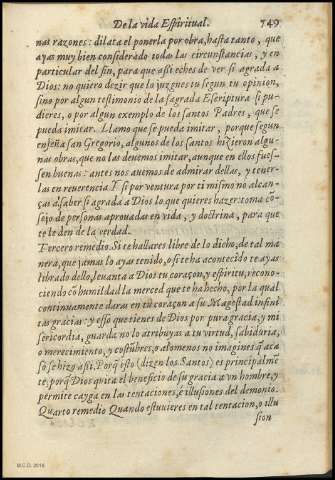 De la vida Espiritual. 749
nas razones: dilata el ponerla por obra, hasta tanto, que
ayas muy bien considerado todas las circunstancias, y en
particular del fin, para que assi eches de ver si agrada a
Dios: no quiero dezir que lo juzgues tu segun tu opinion,
sino por algun testimonio de la sagrada Escriptura si pu-
dieres, o por algun exemplo de los santos Padres, que se
pueda imitar. Llamo que se pueda imitar, porque segun
enseña san Gregorio, algunos de los santos hizieron algu-
nas obras, que no las devemos imitar, aunque en ellos fues-
sen buenas: antes nos avemos de admirar dellas, y tener-
las en reverencia. Y si por ventura por ti mismo no alcan-
ças a saber si agrada a Dios lo que quieres hazer: toma cō-
sejo de personas aprouadas en vida, y doctrina, para que
te teden de la verdad.
Tercero remedio. Si te hallares libre de lo dicho, de tal ma
nera, que jamas lo ayas tenido, o si te ha acontecido te ayas
librado dello, leuanta a Dios tu coraçon, y espiritu, recono-
ciendo cō humildad la merced que te ha hecho, por la qual
continuamente daras en tu coraçon a su Magestad infini-
tas gracias: y esso que tienes de Dios por pura gracia, y mi
sericordia, guarda no lo atribuyas a tu virtud, sabiduria,
o merecimiento, y costūbres, o alomenos no imagines q̄ aca
so se hizo assi. Porq̄ esto (dizen los Santos) es principalmē
te, porq̄ Dios quita el beneficio de su gracia a vn hombre, y
permite cayga en las tentaciones, é illusiones del demonio.
Quarto remedio Quando estuuieres en tal tentacion, o illu
sion
M.C.D. 2016